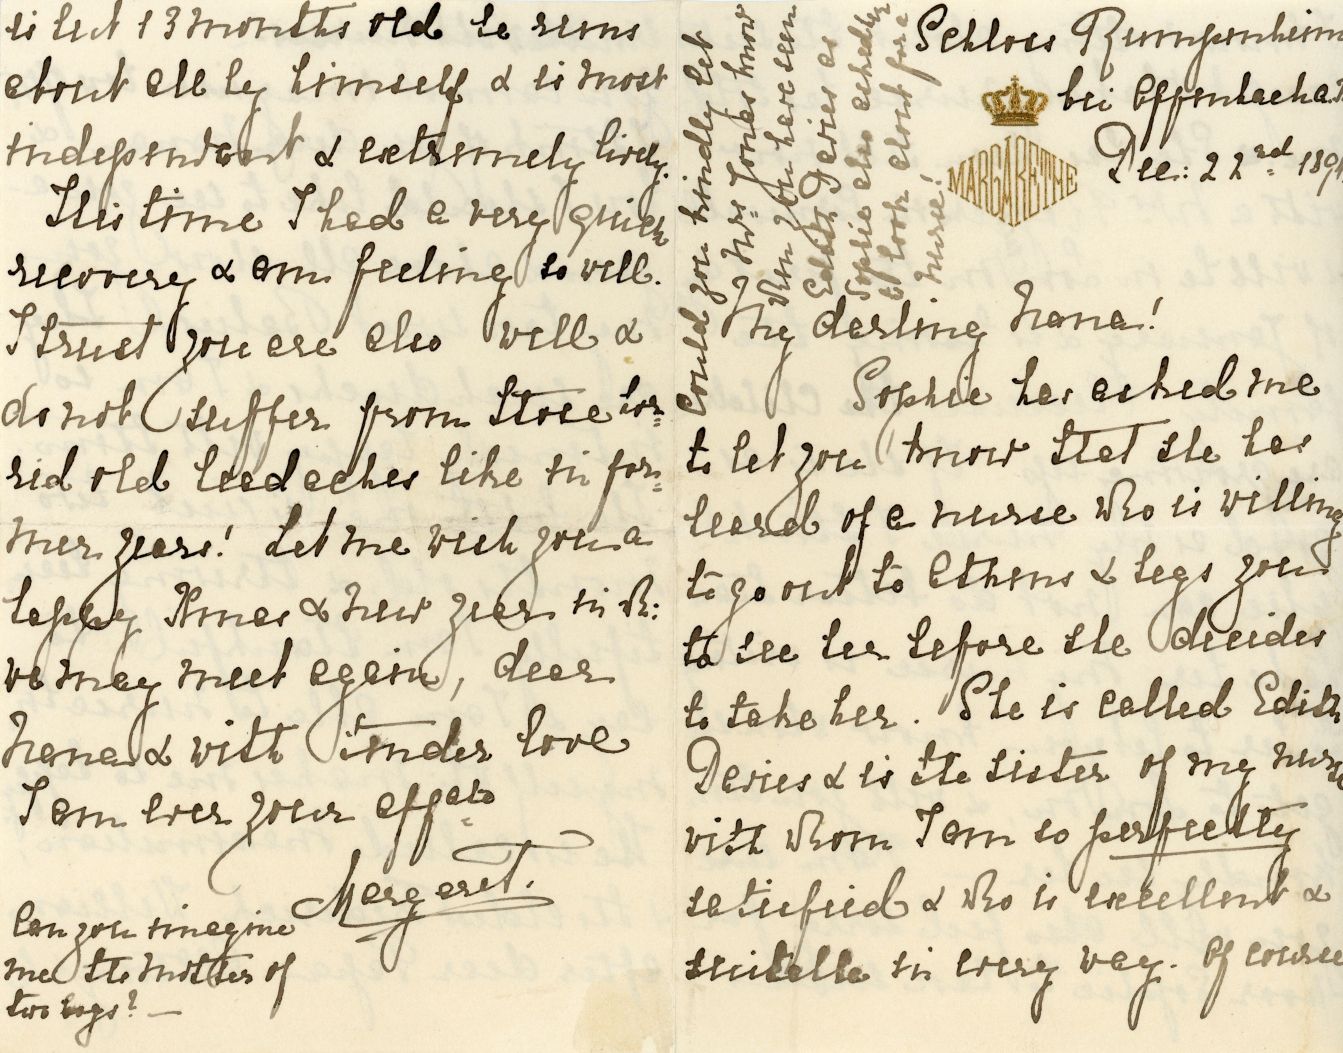 Schloss Rumpenheim
bei Offenbach a.
MARGARETHE
Dec: 22nd 189
My darling Nana!
Sophie has asked me
to let you know that she has
heard of a nurse who is willing
to go out to Athens & begs you
to see her before she decides
to take her. She is called Edith
Davies & is the sister of my nurse
with whom I am so perfectly
satisfied & who is excellent &
suitable in every way. Of course
Could you kindly let
Mrs. Jones know
when you have seen
Edith Davies as
Sophie also asked her
to look about for a
nurse!
is but 13 months old he runs
about all by himself & is most
independent & extremely lively.
This time I had a very quick
recovery & am feeling so well.
I trust you are also well &
do not suffer from those hor=
rid old headaches like in for=
mer years! Let me wish you a
happy Xmas & New year in wh:
we may meet again, dear
Nana & with tender love
I am ever your affate
Margaret.
Can you imagine
me the mother of
two boys? —